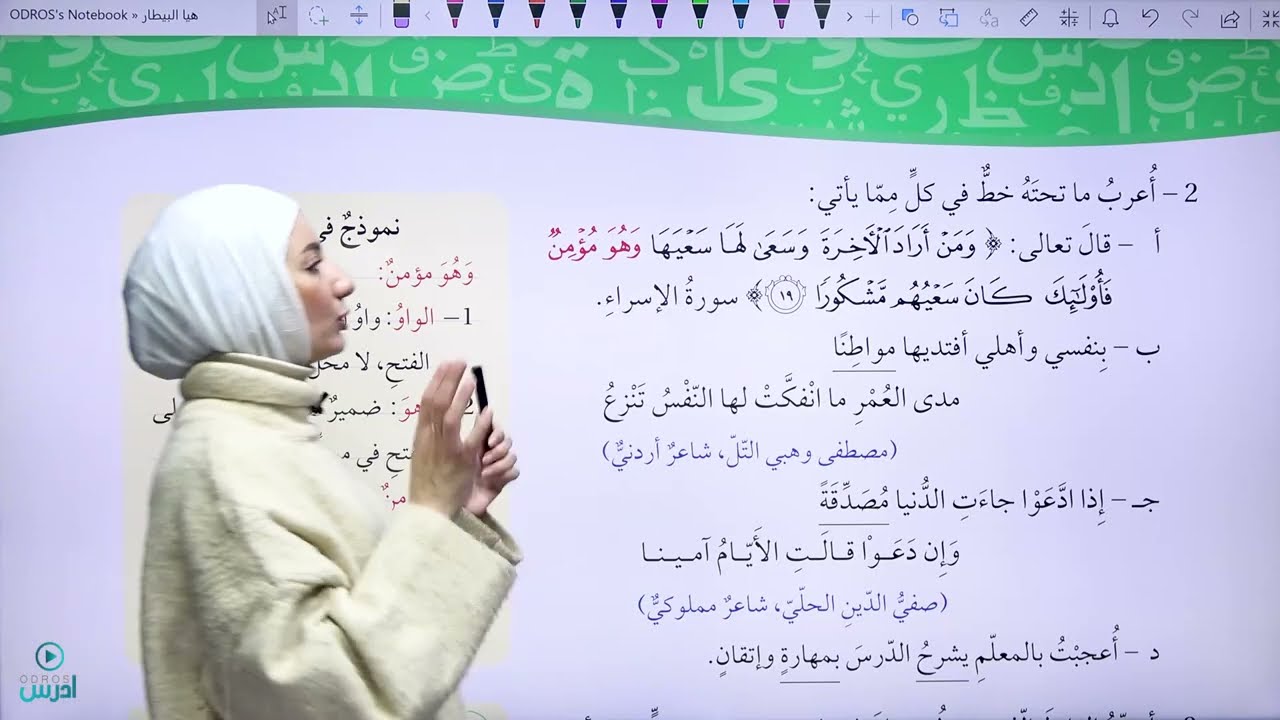 ODROS's Notebook » هيا البيطار
2 – أُعربُ ما تحتَهُ خطٌّ في كلٍّ مِمّا يأتي:
أ – قالَ تعالى: ﴿ وَمَنْ أَرَادَ الْآخِرَةَ وَسَعَىٰ لَهَا سَعْيَهَا وَهُوَ مُؤْمِنٌ
فَأُوْلَٰٓئِكَ كَانَ سَعْيُهُم مَّشْكُورًا ١٩﴾ سورةُ الإسراءِ.
ب – بِنفسي وأهلي أفتديها مواطِنًا
مدى العُمْرِ ما انْفكَّتْ لها النّفْسُ تَنْزعُ
(مصطفى وهبي التّلّ، شاعرٌ أردنيٌّ)
جـ – إِذا ادَّعَوْا جاءَتِ الدُّنيا مُصَدِّقَةً
وَإِن دَعَـوْا قـالَـتِ الأَيّـامُ آمـيـنـا
(صفيُّ الدّينِ الحلّيّ، شاعرٌ مملوكيٌّ)
د – أُعجبْتُ بالمعلّمِ يشرحُ الدّرسَ بمهارةٍ وإتقانٍ.
نموذجٌ في
وَهُوَ مؤمنٌ:
1– الواوُ: واوُ
الفتحِ، لا محلَّ
هوَ: ضميرٌ
ODROS
ادرس